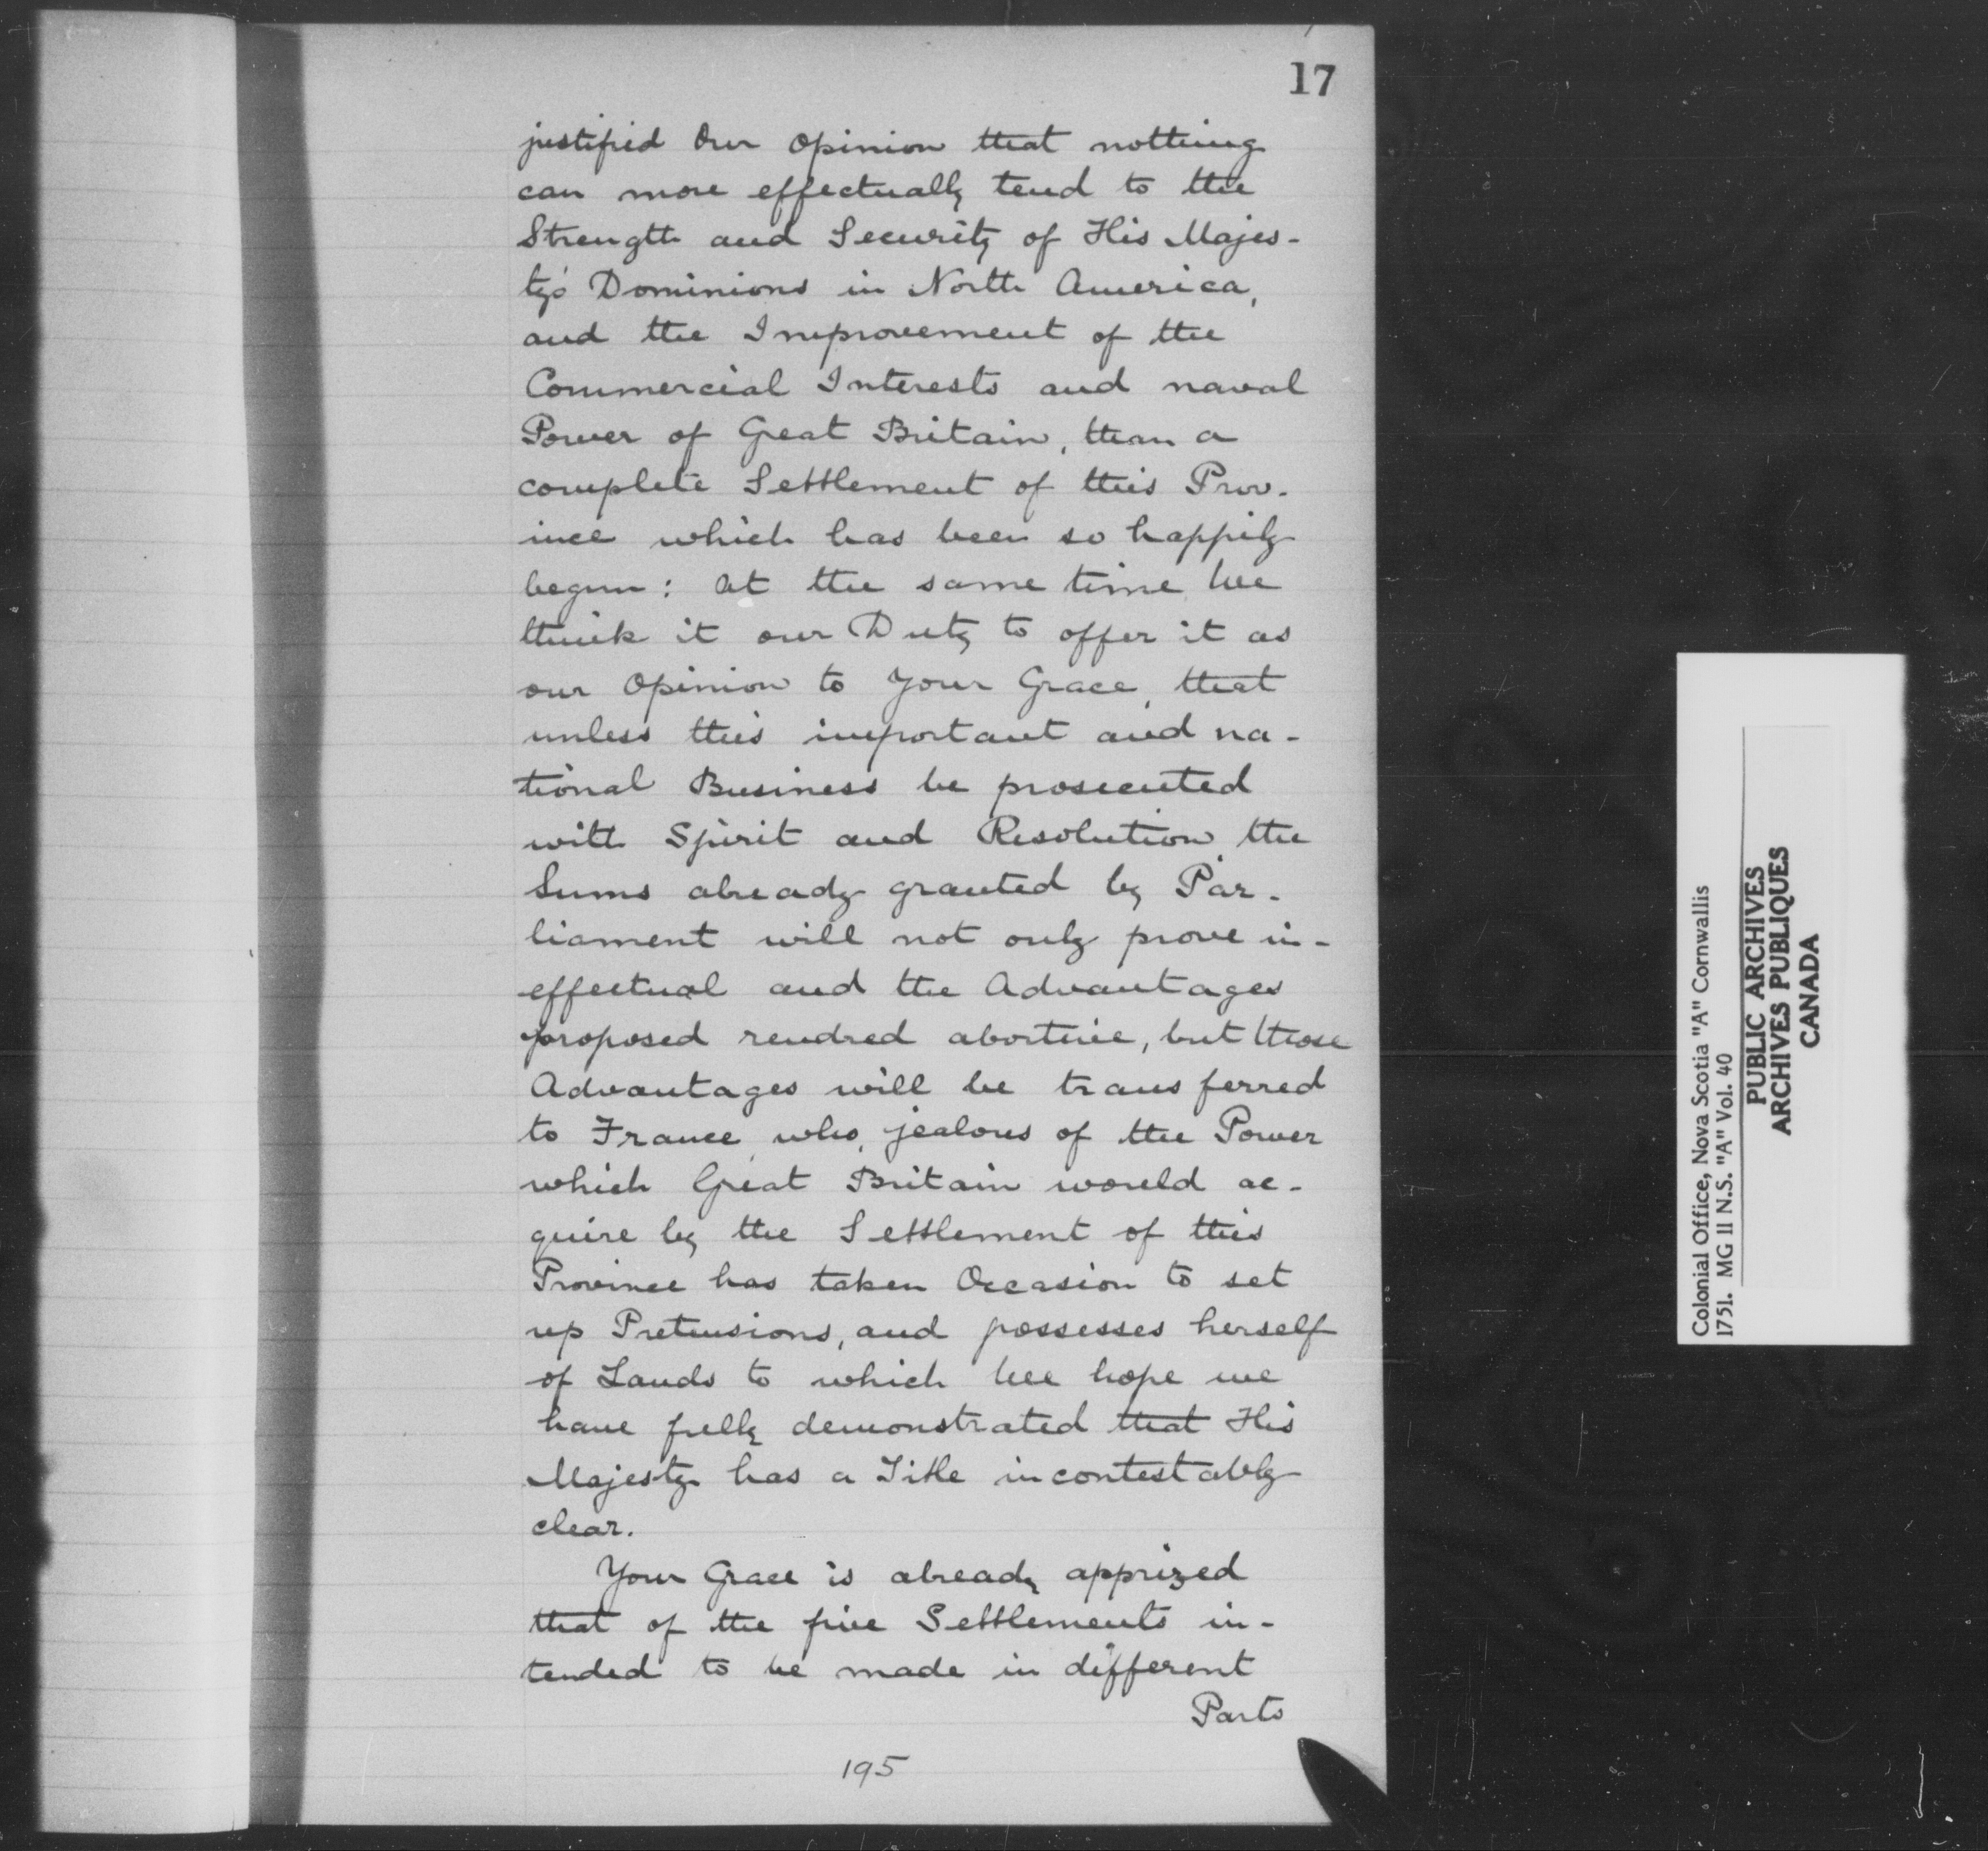 17
justified Our Opinion that nothing
can more effectually tend to the
Strength and Security of His Majes-
ty's Dominions in North America,
and the Improvement of the
Commercial Interests and naval
Power of Great Britain, than a
complete Settlement of this Prov-
ince which has been so happily
begun: at the same time We
think it our Duty to offer it as
our Opinion to Your Grace, that
unless this important and na-
tional Business be prosecuted
with Spirit and Resolution, the
Sums already granted by Par-
liament will not only prove in-
effectual and the Advantages
proposed rendred abortive, but those
Advantages will be transferred
to France, who, jealous of the Power
which Great Britain would ac-
quire by the Settlement of this
Province has taken Occasion to set
up Pretensions, and possesses herself
of Lands to which We hope we
have fully demonstrated that His
Majesty has a Title incontestably
clear.
Your Grace is already apprized
that of the five Settlements in-
tended to be made in different
Parts
195
Colonial Office, Nova Scotia "A" Cornwallis
1751. MG II N.S. "A" Vol. 40
PUBLIC ARCHIVES
ARCHIVES PUBLIQUES
CANADA